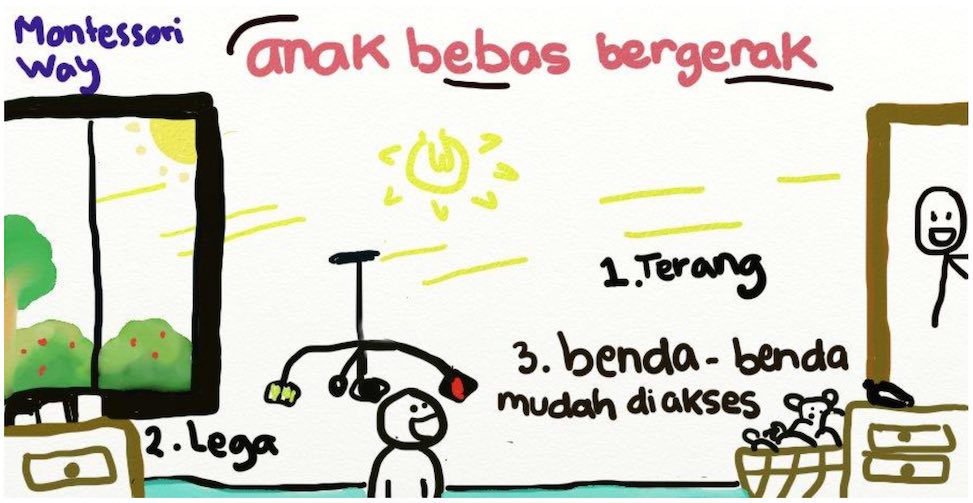 Montessori
Way
anak bebas bergerak
1. Terang
2. Lega
3. benda-benda
mudah diakses